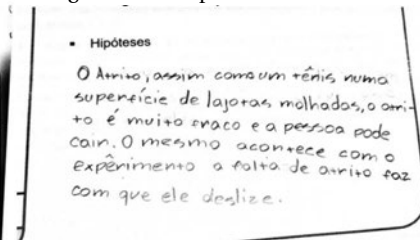 • Hipóteses
O Atrito, assim como um tênis numa
superfície de lajotas molhadas, o atri-
to é muito fraco e a pessoa pode
cair. O mesmo acontece com o
expêrimento a falta de atrito faz
com que ele deslize.